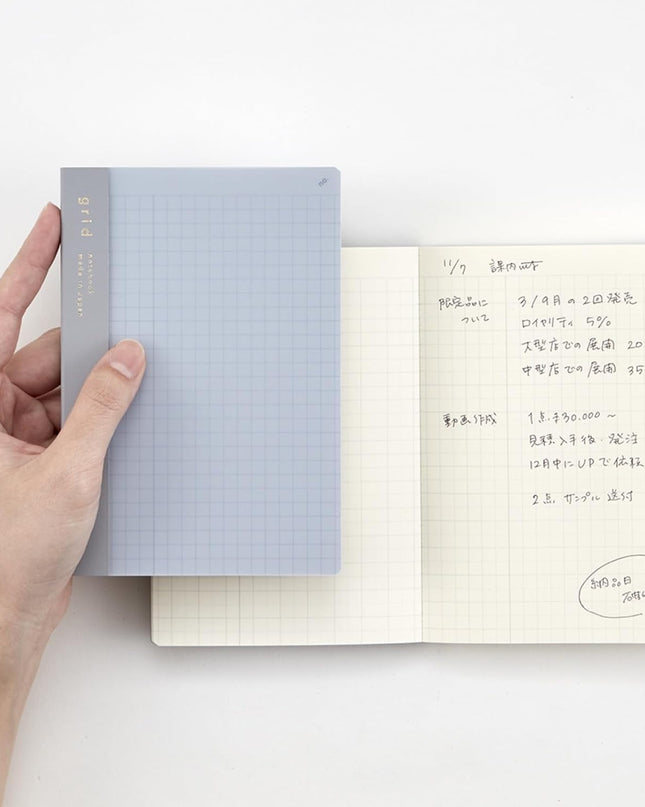 grid
notebook
made in Japan
no.
11/7 課内mtg
限定品に
ついて
3/9月の2回発売
ロイヤリティ 5%
大型店での展開 20
中型店での展開 35
動画作成
1点¥30.000~
見積入手後、発注
12月中にUPで依頼
2点 サンプル送付
納品日